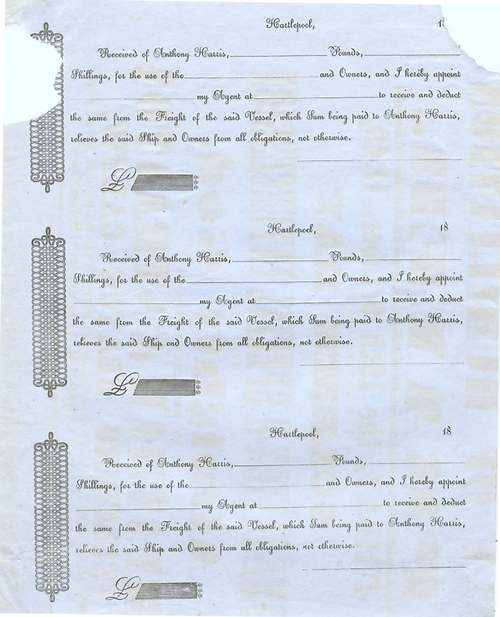 Hartlepool, 1
Received of Anthony Harris, Pounds,
Shillings, for the use of the and Owners, and I hereby appoint
my Agent at to receive and deduct
the same from the Freight of the said Vessel, which Sum being paid to Anthony Harris,
relieves the said Ship and Owners from all obligations, not otherwise.
£
Hartlepool, 18
Received of Anthony Harris, Pounds,
Shillings, for the use of the and Owners, and I hereby appoint
my Agent at to receive and deduct
the same from the Freight of the said Vessel, which Sum being paid to Anthony Harris,
relieves the said Ship and Owners from all obligations, not otherwise.
£
Hartlepool, 18
Received of Anthony Harris, Pounds,
Shillings, for the use of the and Owners, and I hereby appoint
my Agent at to receive and deduct
the same from the Freight of the said Vessel, which Sum being paid to Anthony Harris,
relieves the said Ship and Owners from all obligations, not otherwise.
£